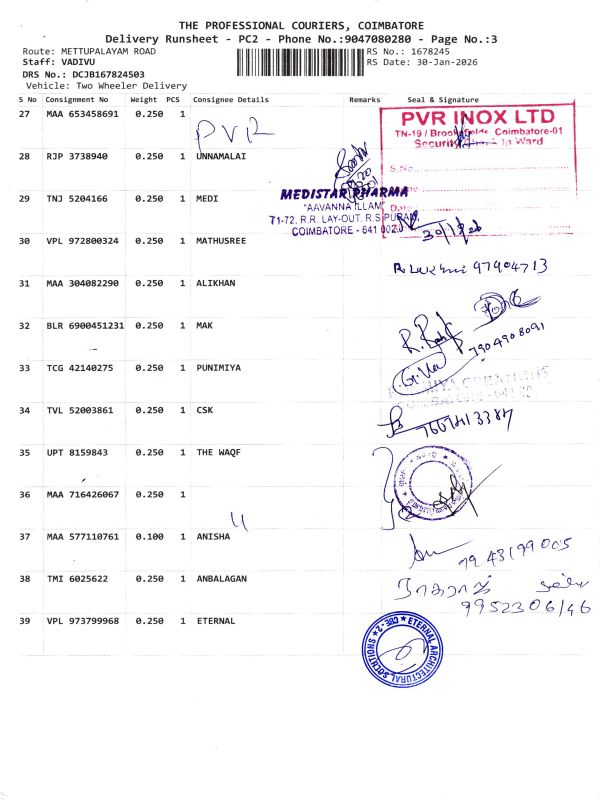 THE PROFESSIONAL COURIERS, COIMBATORE
Delivery Runsheet - PC2 - Phone No.:9047080280 - Page No.:3
Route: METTUPALAYAM ROAD
Staff: VADIVU
DRS No.: DCJB167824503
Vehicle: Two Wheeler Delivery
RS No.: 1678245
RS Date: 30-Jan-2026
S No Consignment No Weight PCS Consignee Details Remarks Seal & Signature
27 MAA 653458691 0.250 1
PVR
PVR INOX LTD
TN-19 / Brookfields Coimbatore-01
Security Inward
S.No.
28 RJP 3738940 0.250 1 UNNAMALAI
29 TNJ 5204166 0.250 1 MEDI
MEDISTAR PHARMA
"AAVANNA ILLAM"
71-72, R.R. LAY-OUT. R.S PURAM
COIMBATORE - 641 002.
30/1/26
30 VPL 972800324 0.250 1 MATHUSREE
31 MAA 304082290 0.250 1 ALIKHAN
32 BLR 6900451231 0.250 1 MAK
7904908091
33 TCG 42140275 0.250 1 PUNIMIYA
34 TVL 52003861 0.250 1 CSK
35 UPT 8159843 0.250 1 THE WAQF
36 MAA 716426067 0.250 1
"
37 MAA 577110761 0.100 1 ANISHA
38 TMI 6025622 0.250 1 ANBALAGAN
9952306146
39 VPL 973799968 0.250 1 ETERNAL
ETERNAL ARCHITECTURAL SOLUTIONS
CBE-2